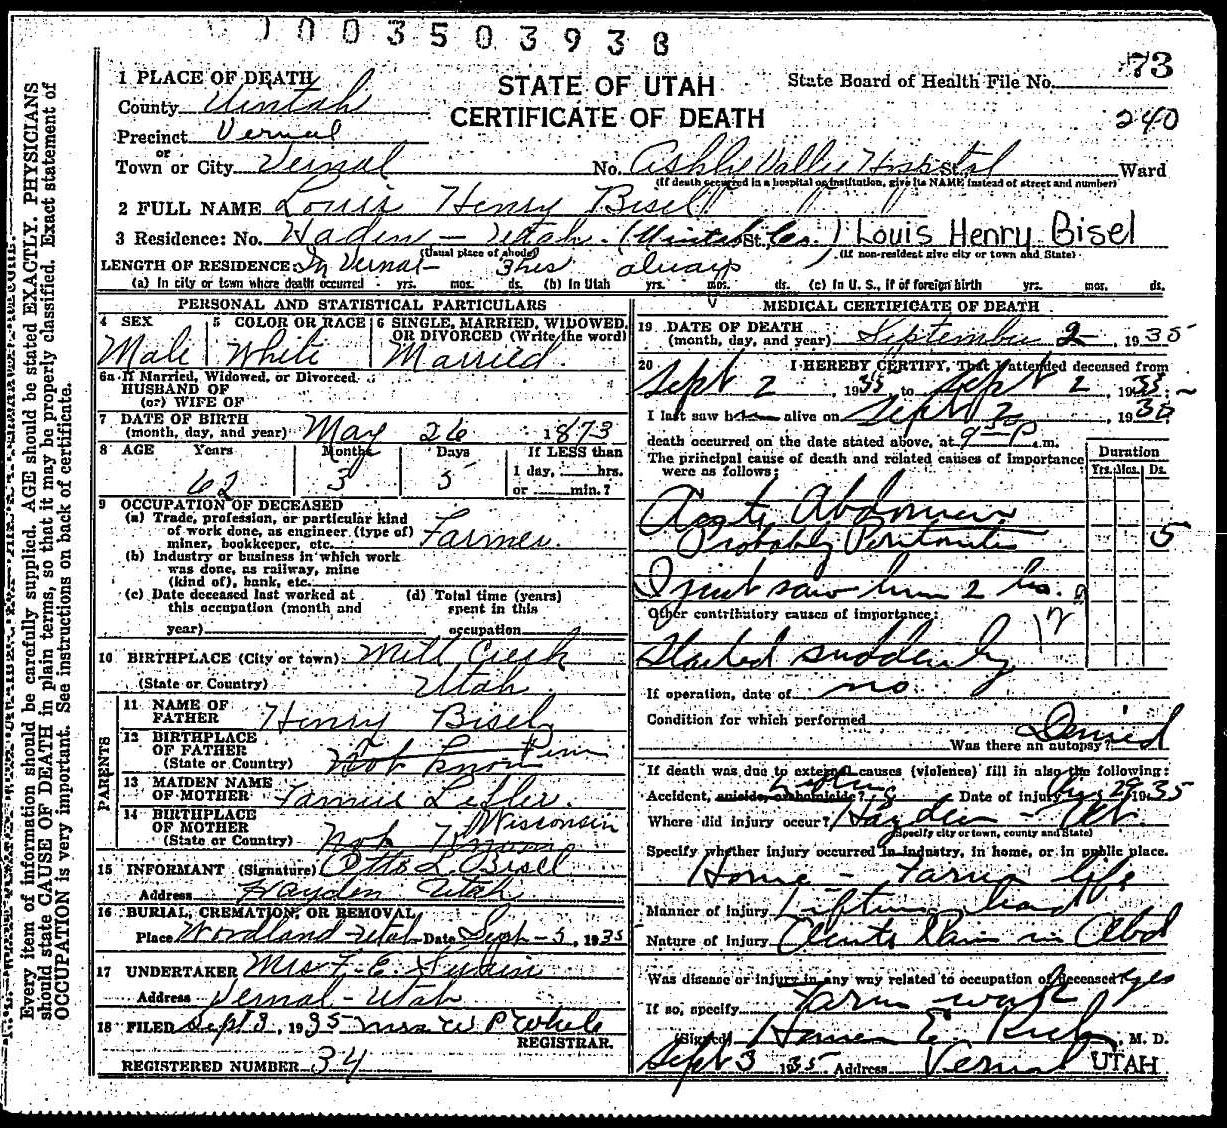 1003503938
73
240
STATE OF UTAH
CERTIFICATE OF DEATH
State Board of Health File No.
1 PLACE OF DEATH
County Uintah
Precinct Vernal
or
Town or City Vernal No. Hospital St. Ward
(If death occurred in a hospital or institution, give its NAME instead of street and number)
2 FULL NAME Louis Henry Bisel
3 Residence: No. Utah. (Uintah St. Co.) Louis Henry Bisel
(Usual place of abode) (If non-resident give city or town and State)
LENGTH OF RESIDENCE: In Vernal - 3 hrs always
(a) In city or town where death occurred yrs. mos. ds. (b) In Utah yrs. mos. ds. (c) In U. S., if of foreign birth yrs. mos. ds.
PERSONAL AND STATISTICAL PARTICULARS
4 SEX Male
5 COLOR OR RACE White
6 SINGLE, MARRIED, WIDOWED, OR DIVORCED (Write the word) Married
6a If Married, Widowed, or Divorced
HUSBAND OF
(or) WIFE OF
7 DATE OF BIRTH
(month, day, and year) May 26 1873
8 AGE Years Months Days If LESS than
62 3 5 1 day, hrs.
or min.?
9 OCCUPATION OF DECEASED
(a) Trade, profession, or particular kind
of work done, as engineer (type of)
miner, bookkeeper, etc. Farmer.
(b) Industry or business in which work
was done, as railway, mine
(kind of), bank, etc.
(c) Date deceased last worked at
this occupation (month and
year)
(d) Total time (years)
spent in this
occupation
10 BIRTHPLACE (City or town) Mill Creek
(State or Country) Utah
PARENTS
11 NAME OF
FATHER Henry Bisel
12 BIRTHPLACE
OF FATHER
(State or Country) Not Known Penn
13 MAIDEN NAME
OF MOTHER
14 BIRTHPLACE
OF MOTHER
(State or Country) Not Known Wisconsin
15 INFORMANT (Signature) Otto L. Bisel
Address Hayden Utah
16 BURIAL, CREMATION, OR REMOVAL
Place Woodland Utah Date Sept - 5, 1935
17 UNDERTAKER Mrs. F. E.
Address Vernal - Utah
18 FILED Sept 3, 1935 Mrs. W P White
REGISTRAR.
REGISTERED NUMBER 34
MEDICAL CERTIFICATE OF DEATH
19 DATE OF DEATH
(month, day, and year) September 2, 1935
20 I HEREBY CERTIFY, That I attended deceased from
Sept 2 1935 to Sept 2, 1935
I last saw him alive on Sept 2, 1935
death occurred on the date stated above, at 9 30 P.m.
The principal cause of death and related causes of importance
were as follows:
Duration
Yrs. Mos. Ds.
Acute Abdomen
Probably Peritonitis 5
I just saw him 2 hrs.
Other contributary causes of importance:
Started suddenly
If operation, date of no
Condition for which performed
Was there an autopsy? Denied
If death was due to external causes (violence) fill in also the following:
Lifting
Accident, suicide, or homicide? Date of injury Aug 29 1935
Where did injury occur? Hayden - Ut.
(Specify city or town, county and State)
Specify whether injury occurred in industry, in home, or in public place.
Home - Farm life
Manner of injury Lifting load
Nature of injury Acute Pain in Abd
Was disease or injury in any way related to occupation of deceased? yes
If so, specify Farm work
(Signed) E. M. D.
Sept 3 1935 Address Vernal UTAH
Every item of information should be carefully supplied. AGE should be stated EXACTLY. PHYSICIANS
should state CAUSE OF DEATH in plain terms, so that it may be properly classified. Exact statement of
OCCUPATION is very important. See instructions on back of certificate.